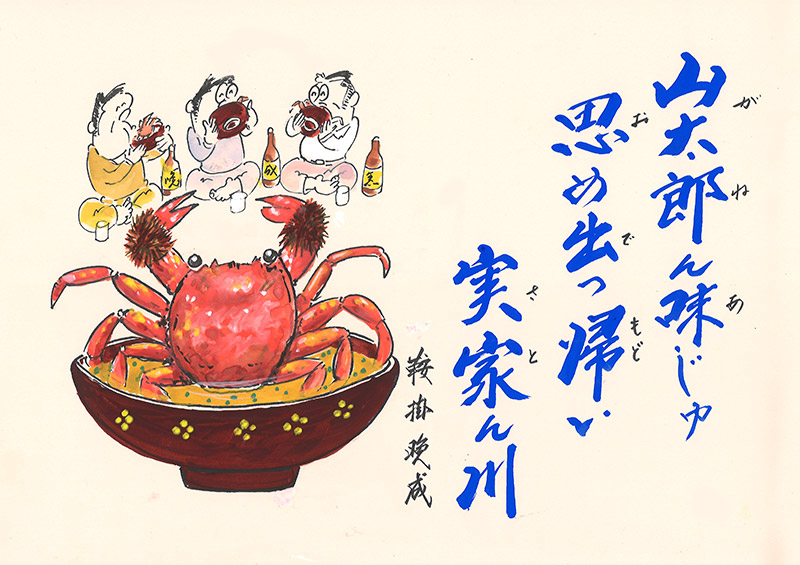 山太郎ん味じゅ
がね あ
思め出っ帰い
お で もど
実家ん川
さと
鞍掛晩成
晩
成